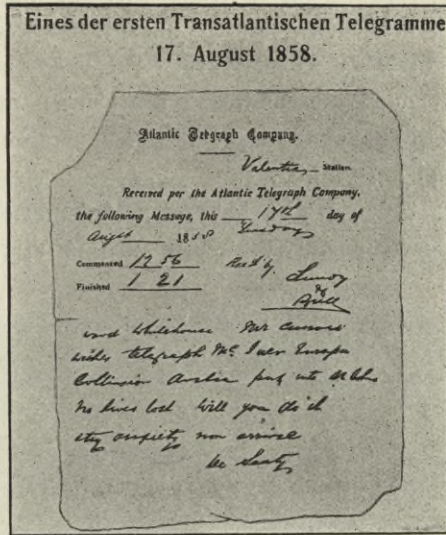 Eines der ersten Transatlantischen Telegramme
17. August 1858.
Atlantic Telegraph Company.
Valentia Station.
Received per the Atlantic Telegraph Company,
the following Message, this 17th day of
1858
Commenced 12 56 Recd by
Finished 1 21
Whitehouse
wishes telegraph Mc Iver Europa
Collision Arabia put into
No lives lost will you do it
stay anxiety non arrival
De Sauty